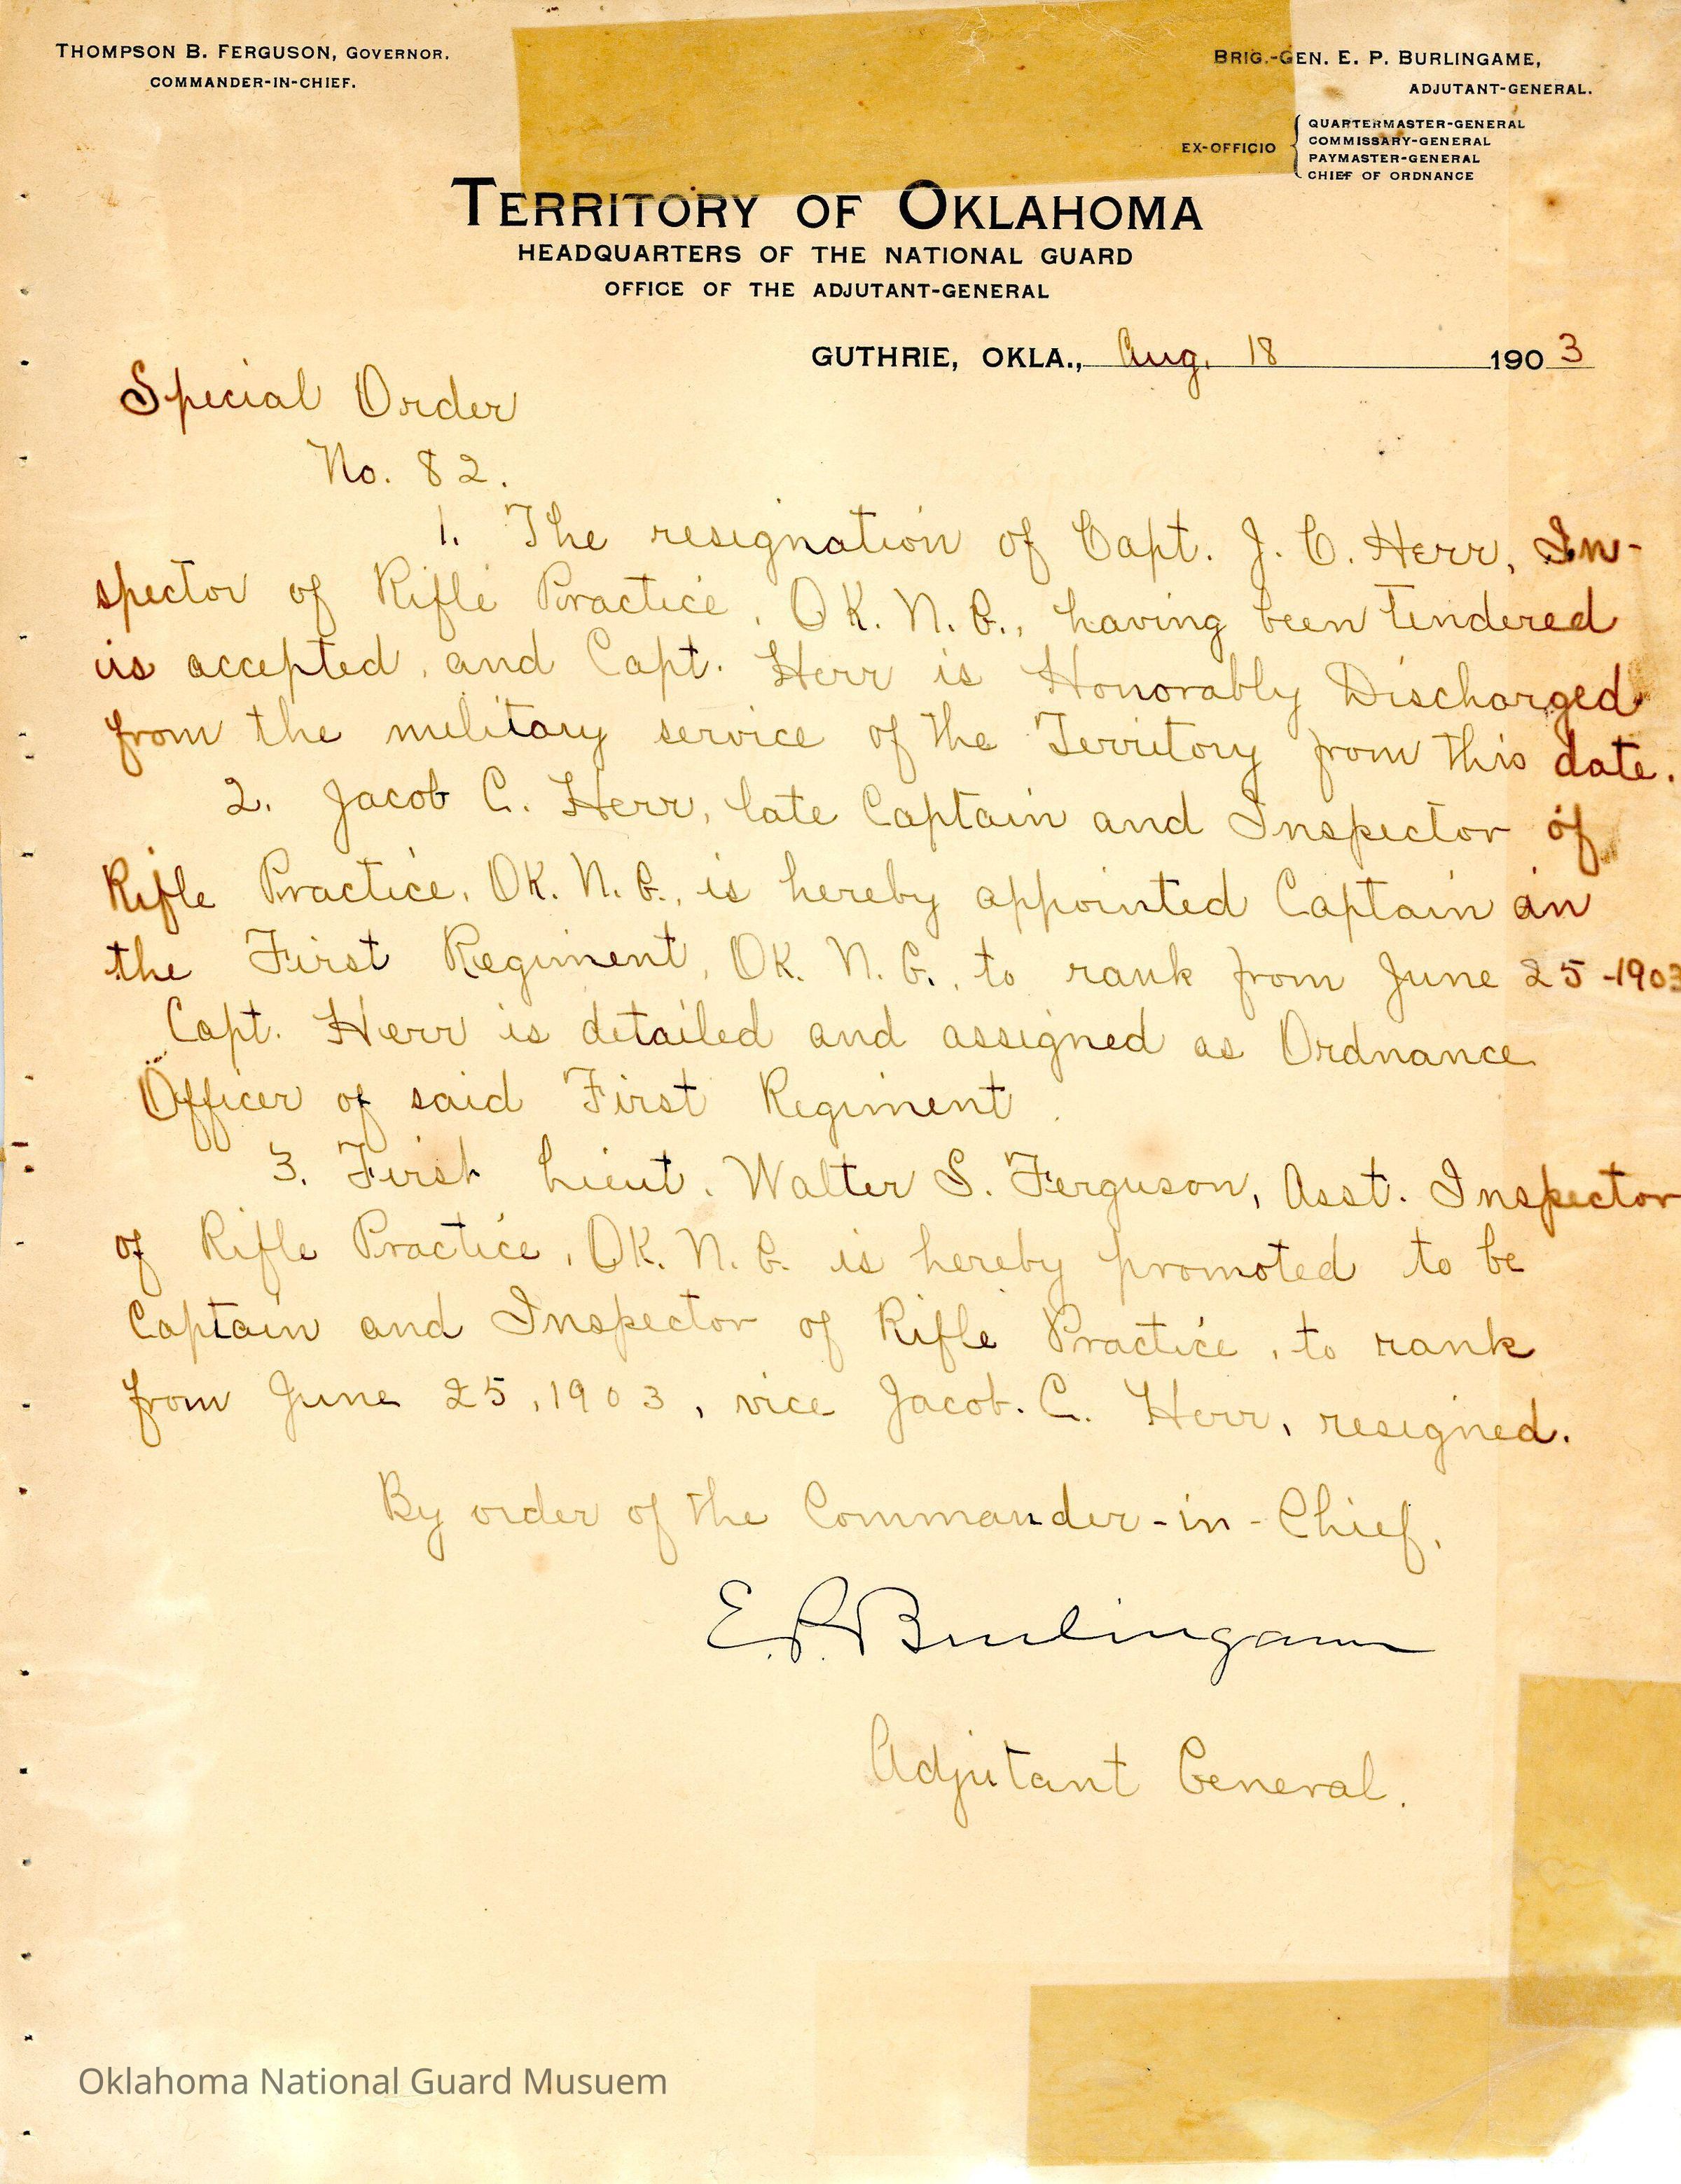 THOMPSON B. FERGUSON, GOVERNOR.
COMMANDER-IN-CHIEF.
BRIG.-GEN. E. P. BURLINGAME,
ADJUTANT-GENERAL.
EX-OFFICIO
QUARTERMASTER-GENERAL
COMMISSARY-GENERAL
PAYMASTER-GENERAL
CHIEF OF ORDNANCE
TERRITORY OF OKLAHOMA
HEADQUARTERS OF THE NATIONAL GUARD
OFFICE OF THE ADJUTANT-GENERAL
GUTHRIE, OKLA., Aug. 18 1903
Special Order
No. 82.
1. The resignation of Capt. J. C. Herr, In-
spector of Rifle Practice, OK. N. G., having been tendered
is accepted, and Capt. Herr is Honorably Discharged
from the military service of the Territory from this date.
2. Jacob C. Herr, late Captain and Inspector of
Rifle Practice, OK. N. G., is hereby appointed Captain in
the First Regiment, OK. N. G., to rank from June 25-1903
Capt. Herr is detailed and assigned as Ordnance
Officer of said First Regiment.
3. First Lieut. Walter S. Ferguson, Asst. Inspector
of Rifle Practice, OK. N. G. is hereby promoted to be
Captain and Inspector of Rifle Practice, to rank
from June 25, 1903, vice Jacob. C. Herr, resigned.
By order of the Commander-in-Chief.
E. P. Burlingame
Adjutant General.
Oklahoma National Guard Musuem